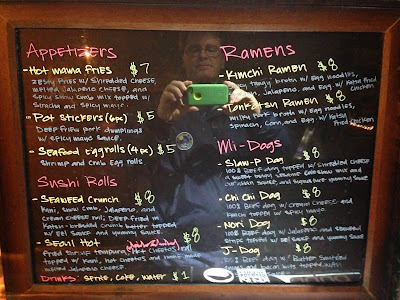 Appetizers
- Hot mama fries $7
zesty fries w/ shredded cheese,
melted jalapeno cheese, and
spicy snow crab milk topped w/
sriracha and spicy mayo.
- Pot stickers (6pc) $5
Deep fried pork dumplings
w/ spicy mayo sauce.
- Seafood Eggrolls (4pc) $5
Shrimp and crab Egg rolls
Sushi Rolls
- Seaweed Crunch $8
Kani, snow crab, Jalapeno, and
cream cheese roll; Deep fried in
katsu-breaded crumb batter topped
w/ eel sauce and yummy sauce.
- Seoul Hot $8
Fried shrimp tempura, Hot cheetos
topped w/ kani, hot cheetos and
melted Jalapeno cheese
Drinks: Sprite, Coke, Water $1
Ramens
- Kimchi Ramen $8
tangy broth w/ Egg noodles,
Jalapeno, and Egg w/ Katsu fried
chicken
- Tonkatsu Ramen $8
milky pork broth w/ Egg noodles,
spinach, corn, and Egg w/ Katsu
fried chicken
Mi-Dogs
- Slaw-P Dog $8
100% Beef dog topped w/ shredded cheese
- Chi Chi Dog $8
100% Beef dog w/ cream cheese and
kimchi topped w/ spicy mayo.
- Nori Dog $8
100% Beef dog w/ Jalapeno and seaweed
strips topped w/ eel sauce and yummy sauce
- J-Dog $8
100% Beef dog w/ Butter sauteed